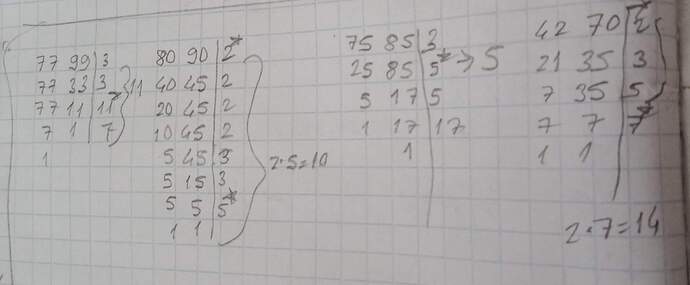 77 99 | 3
77 33 | 3
77 11 | 11*
7 1 | 7
1
} 11
80 90 | 2*
40 45 | 2
20 45 | 2
10 45 | 2
5 45 | 3
5 15 | 3
5 5 | 5*
1 1 |
} 2·5=10
75 85 | 3
25 85 | 5* → 5
5 17 | 5
1 17 | 17
1 |
42 70 | 2*
21 35 | 3
7 35 | 5
7 7 | 7*
1 1 |
2·7=14